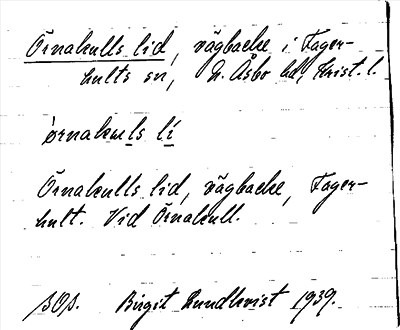 Örnakulls lid, vägbacke i Fager-
hults sn, N. Åsbo hd, Krist. l.
örnakuls lí
Örnakulls lid, vägbacke, Fager-
hult. Vid Örnakull.
SOS. Birgit Lundkvist 1939.